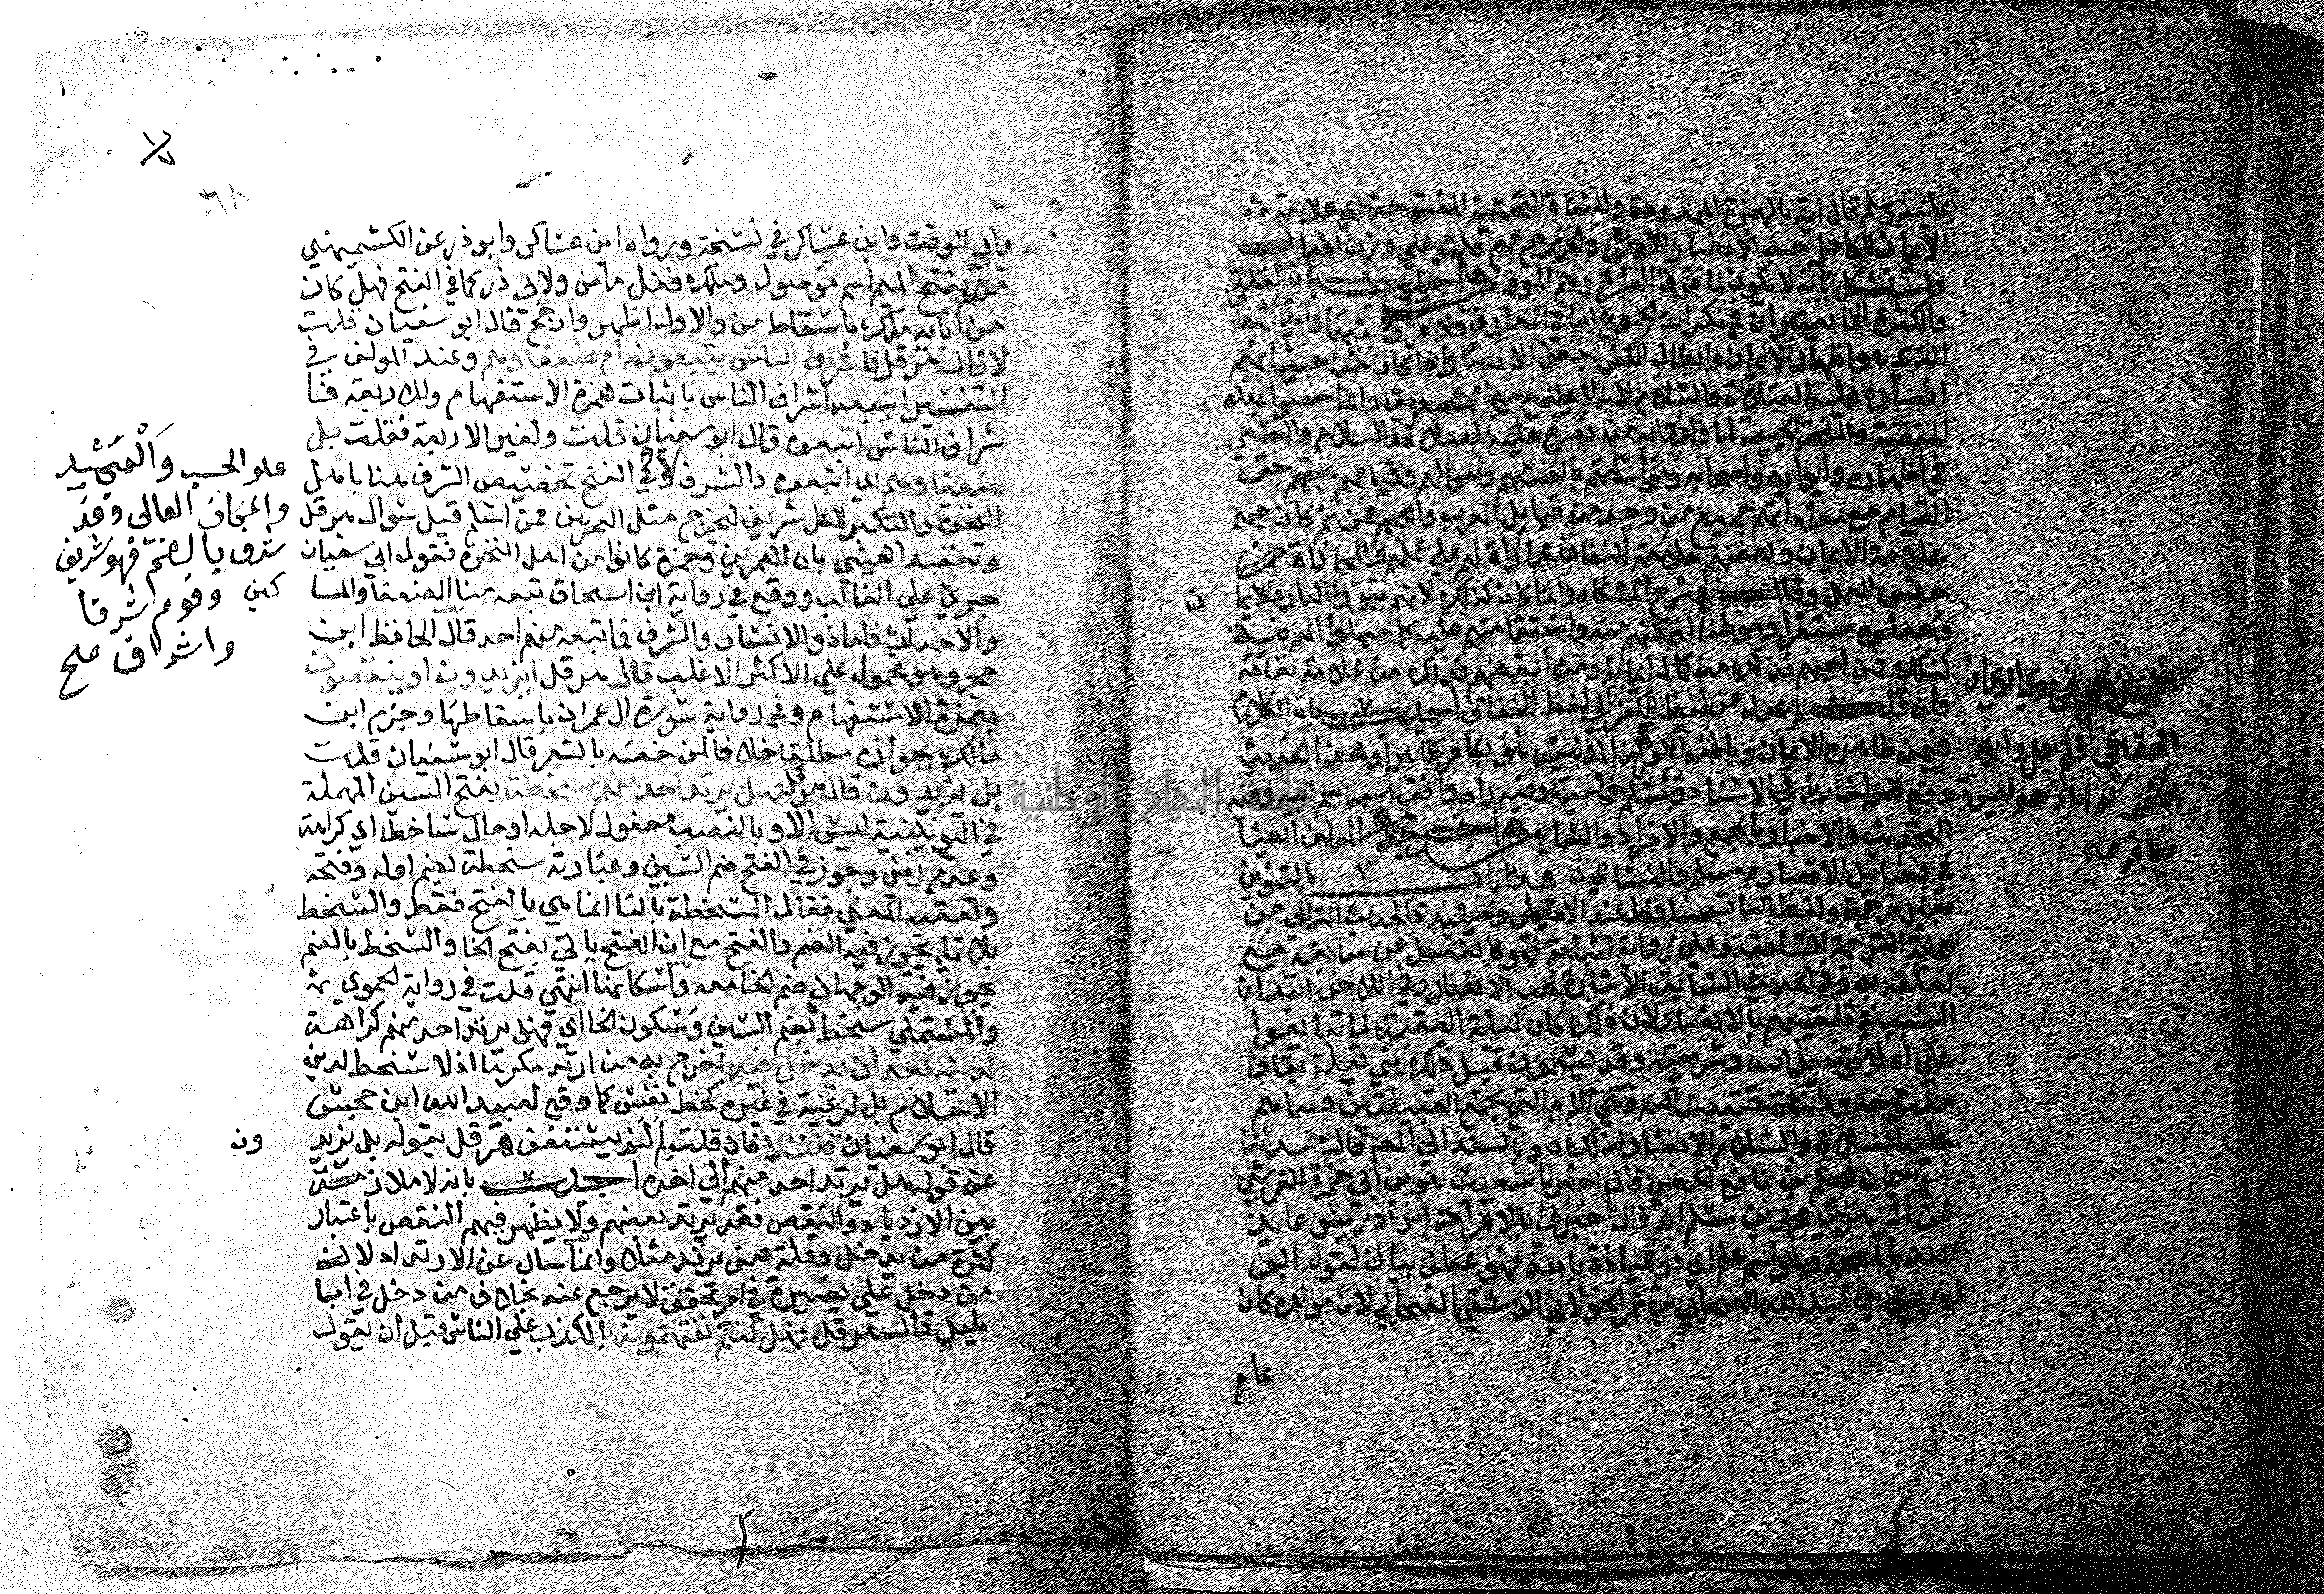 عليه وسلم قال اية بالهمزة الممدودة والمثناة التحتية المفتوحة اي علامة
الايمان الكامل حب الانصار الاوس والخزرج جمع قلة وعلي وزن افعال
واستشكل بانه لا يكون لما فوق العشرة وهم الوف واجيب بان القلة
والكثرة انما يعتبران في نكرات الجموع اما في المعارف فلا فرق بينهما واية النفا
الذي هو اظهار الايمان وابطال الكفر بغض الانصار اذا كان من حيث انهم
انصاره عليه الصلاة والسلام لانه لا يجتمع مع التصديق وانما خصوا بهذه
المنقبة والمنحة الجسيمة لما فازوا به من نصره عليه الصلاة والسلام والسعي
في اظهاره وايوايه واصحابه ومواساتهم بانفسهم واموالهم وقيامهم بحقهم حق
القيام مع معاداتهم جميع من وجد من قبايل العرب والعجم فمن ثم كان حبهم
علامة الايمان وبغضهم علامة النفاق مجازاة لهم علي عملهم والجزاء من
جنس العمل وقال في شرح المشكاه وانما كان كذلك لانهم تبوؤا الدار والايما
ن
وجعلوه مستقرا وموطنا لتمكنهم منه واستقامتهم عليه كما جعلوا المدينة
كذلك فمن احبهم فذلك من كمال ايمانه ومن ابغضهم فذلك من علامة نفاقه
فان قلت لم عدل عن لفظ الكفر الي لفظ النفاق اجيب بان الكلام
فيمن ظاهره الايمان وباطنه الكفر اذ ليس هو بكافر ظاهرا وهذا الحديث
وقع للمولف رباعي الاسناد ولمسلم خماسيه وفيه راو وافق اسمه اسم ابيه وفيه
التحديث والاخبار بالجمع والافراد والسماع واخرجه المولف ايضا
في فضايل الانصار ومسلم والنساي ه هذا باب بالتنوين
بغير ترجمة ولفظ الباب ساقط عند الاصيلي وحينئذ فالحديث التالي من
جملة الترجمة السابقه وعلي رواية اثباته فهو كالفصل عن سابقه مع
تعلقه به وفي الحديث السابق الاشارة لحب الانصار وفي اللاحق ابتدا
السبب في تلقيبهم بالانصار ولان ذلك كان ليلة العقبة لما تبايعوا
علي اعلا توحيد الله وشريعته وقد يسمون قبل ذلك بني قيلة بقاف
مفتوحة ومثناة تحتيه ساكنة وهي الام التي تجمع القبيلتين فسماهم
عليه الصلاة والسلام الانصار لذلك ه وبالسند الي المص قال حدثنا
ابو اليمان الحكم بن نافع الحمصي قال اخبرنا شعيب هو بن ابي حمزة القرشي
عن الزهري محمد بن مسلم انه قال اخبرني بالافراد ابو ادريس عايذ
الله بالمعجمة وهو اسم علم اي ذو عياذة بالله فهو عطف بيان لقوله ابو
ادريس بن عبد الله الصحابي بن عمر الخولاني الدمشقي الصحابي لان مولده كان
عام
ذوي الايمان
الحقيقي فلم يقل واية
الكفر كذا اذ هو ليس
بكافر صح
٦٨
وابي الوقت وابن عساكر في نسخة ورواه ابن عساكر وابو ذر عن الكشميهني
من بفتح الميم اسم موصول وملك فعل ماض ولابي ذر كما في الفتح فهل كان
من ابايه ملك باسقاط من والاول اظهر وارجح قال ابو سفيان قلت
لا قال هرقل فاشراف الناس يتبعونه ام ضعفاوهم وعند المولف في
التفسير ايتبعه اشراف الناس باثبات همزة الاستفهام وللاربعة فا
شراف الناس اتبعوه قال ابو سفيان قلت ولغير الاربعة فقلت بل
ضعفاوهم اي اتبعوه والشرف وفي الفتح تخصيص الشرف هنا باهل
النخوة والتكبر لا كل شريف ليخرج مثل العمرين ممن اسلم قبل سوال هرقل
وتعقبه العيني بان العمرين وحمزة كانوا من اهل النخوة فقول ابي سفيان
جري علي الغالب ووقع في رواية ابن اسحاق تبعه منا الضعفا والمسا
كين
والاحداث فاما ذو الانساب والشرف فما تبعه منهم احد قال الحافظ ابن
حجر وهو محمول علي الاكثر الاغلب قال هرقل ايزيدون او ينقصون
بهمزة الاستفهام وفي رواية سورة ال عمران باسقاطها وجزم ابن
مالك بجوازه مطلقا خلافا لمن خصه بالشعر قال ابو سفيان قلت
بل يزيدون قال هرقل فهل يرتد احد منهم سخطة بفتح السين المهملة
في اليونينية ليس الا وبالنصب مفعول لاجله او حال ساخطا اي كراهة
وعدم رضي وجوز في الفتح ضم السين وعبارته سخطة بضم اوله وفتحه
وتعقبه العيني فقال السخطة بالتا انما هي بالفتح فقط والسخط
بلا تا يجوز فيه الضم والفتح مع ان الفتح ياتي بفتح الخا والسخط بالضم
يجوز فيه الوجهان ضم الخا معه واسكانها انتهي قلت في رواية الحموي
والمستملي سخط بضم السين وسكون الخا اي فهل يرتد احد منهم كراهة
لدينه بعد ان يدخل فيه اخرج به من ارتد مكرها اذ لا سخط لدين
الاسلام بل لرغبة في غيره كحظ نفس كما وقع لعبيد الله ابن جحش
قال ابو سفيان قلت لا فان قلت لم لم يستغن هرقل بقوله بل يزيد
ون
عن قوله هل يرتد احد منهم الي اخره اجيب بانه لا ملازمة
بين الازدياد والنقص فقد يرتد بعضهم ولا يظهر فيهم النقص باعتبار
كثرة من يدخل وقلة من يرتد مثلا وانما سال عن الارتداد لان
من دخل علي بصيرة في امر محقق لا يرجع عنه بخلاف من دخل في ابا
طيل قال هرقل فهل كنتم تتهمونه بالكذب علي الناس قبل ان يقول
علو الحسب والمجد
والمكان العالي وقد
شرف بالضم فهو شريف
وقوم شرفا
واشراف صح
النجاح الوطنية